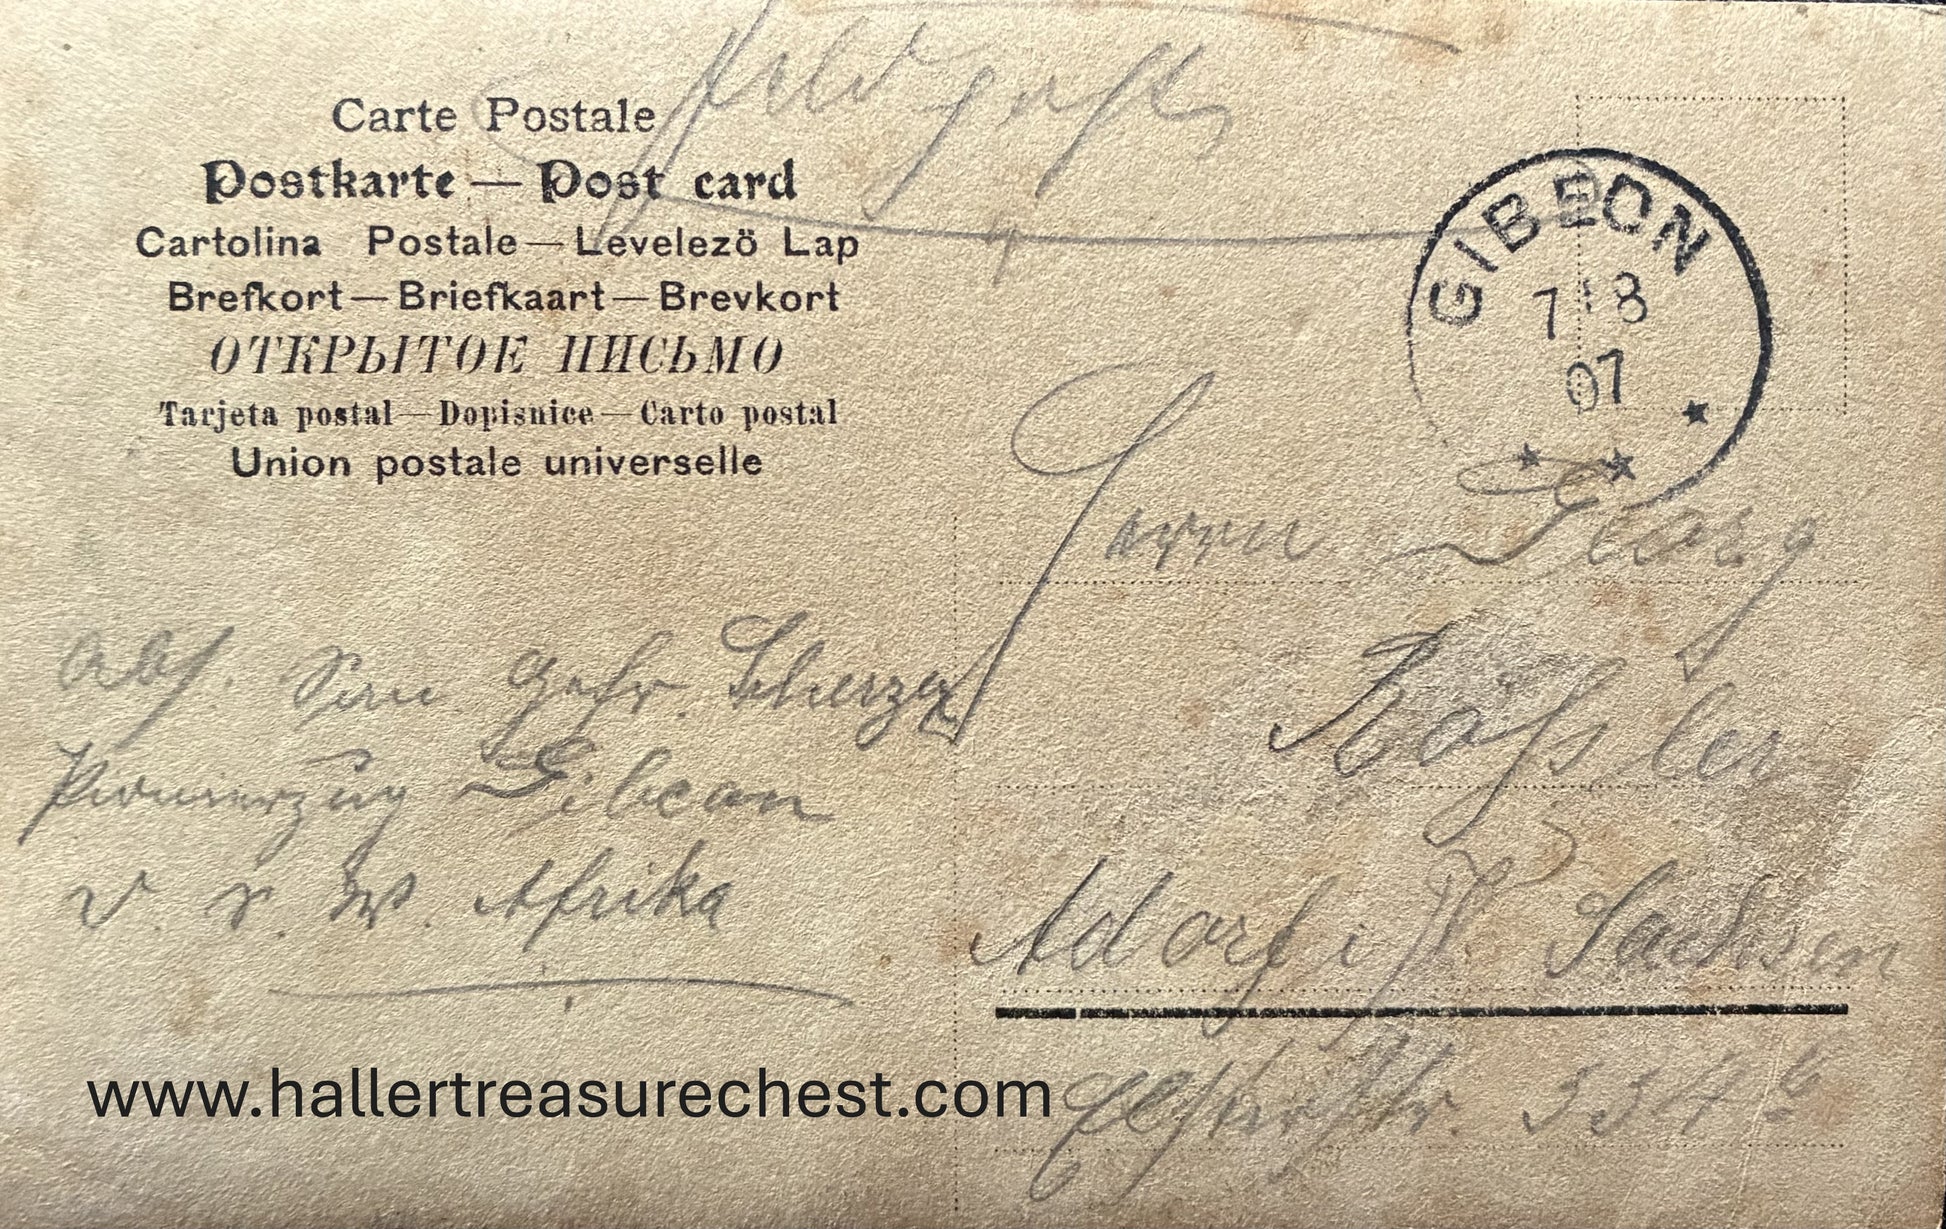 Feldpost
Carte Postale
Postkarte — Post card
Cartolina Postale — Levelezö Lap
Brefkort — Briefkaart — Brevkort
ОТКРЫТОЕ ПИСЬМО
Tarjeta postal — Dopisnice — Carto postal
Union postale universelle
GIBEON
7 8
07
Herrn Georg
Kössler
Adorf i/V Sachsen
Elsterstr. 334
Abs. Gefr. Scherzer
Pionierzug Gibeon
D. S. W. Afrika
www.hallertreasurechest.com